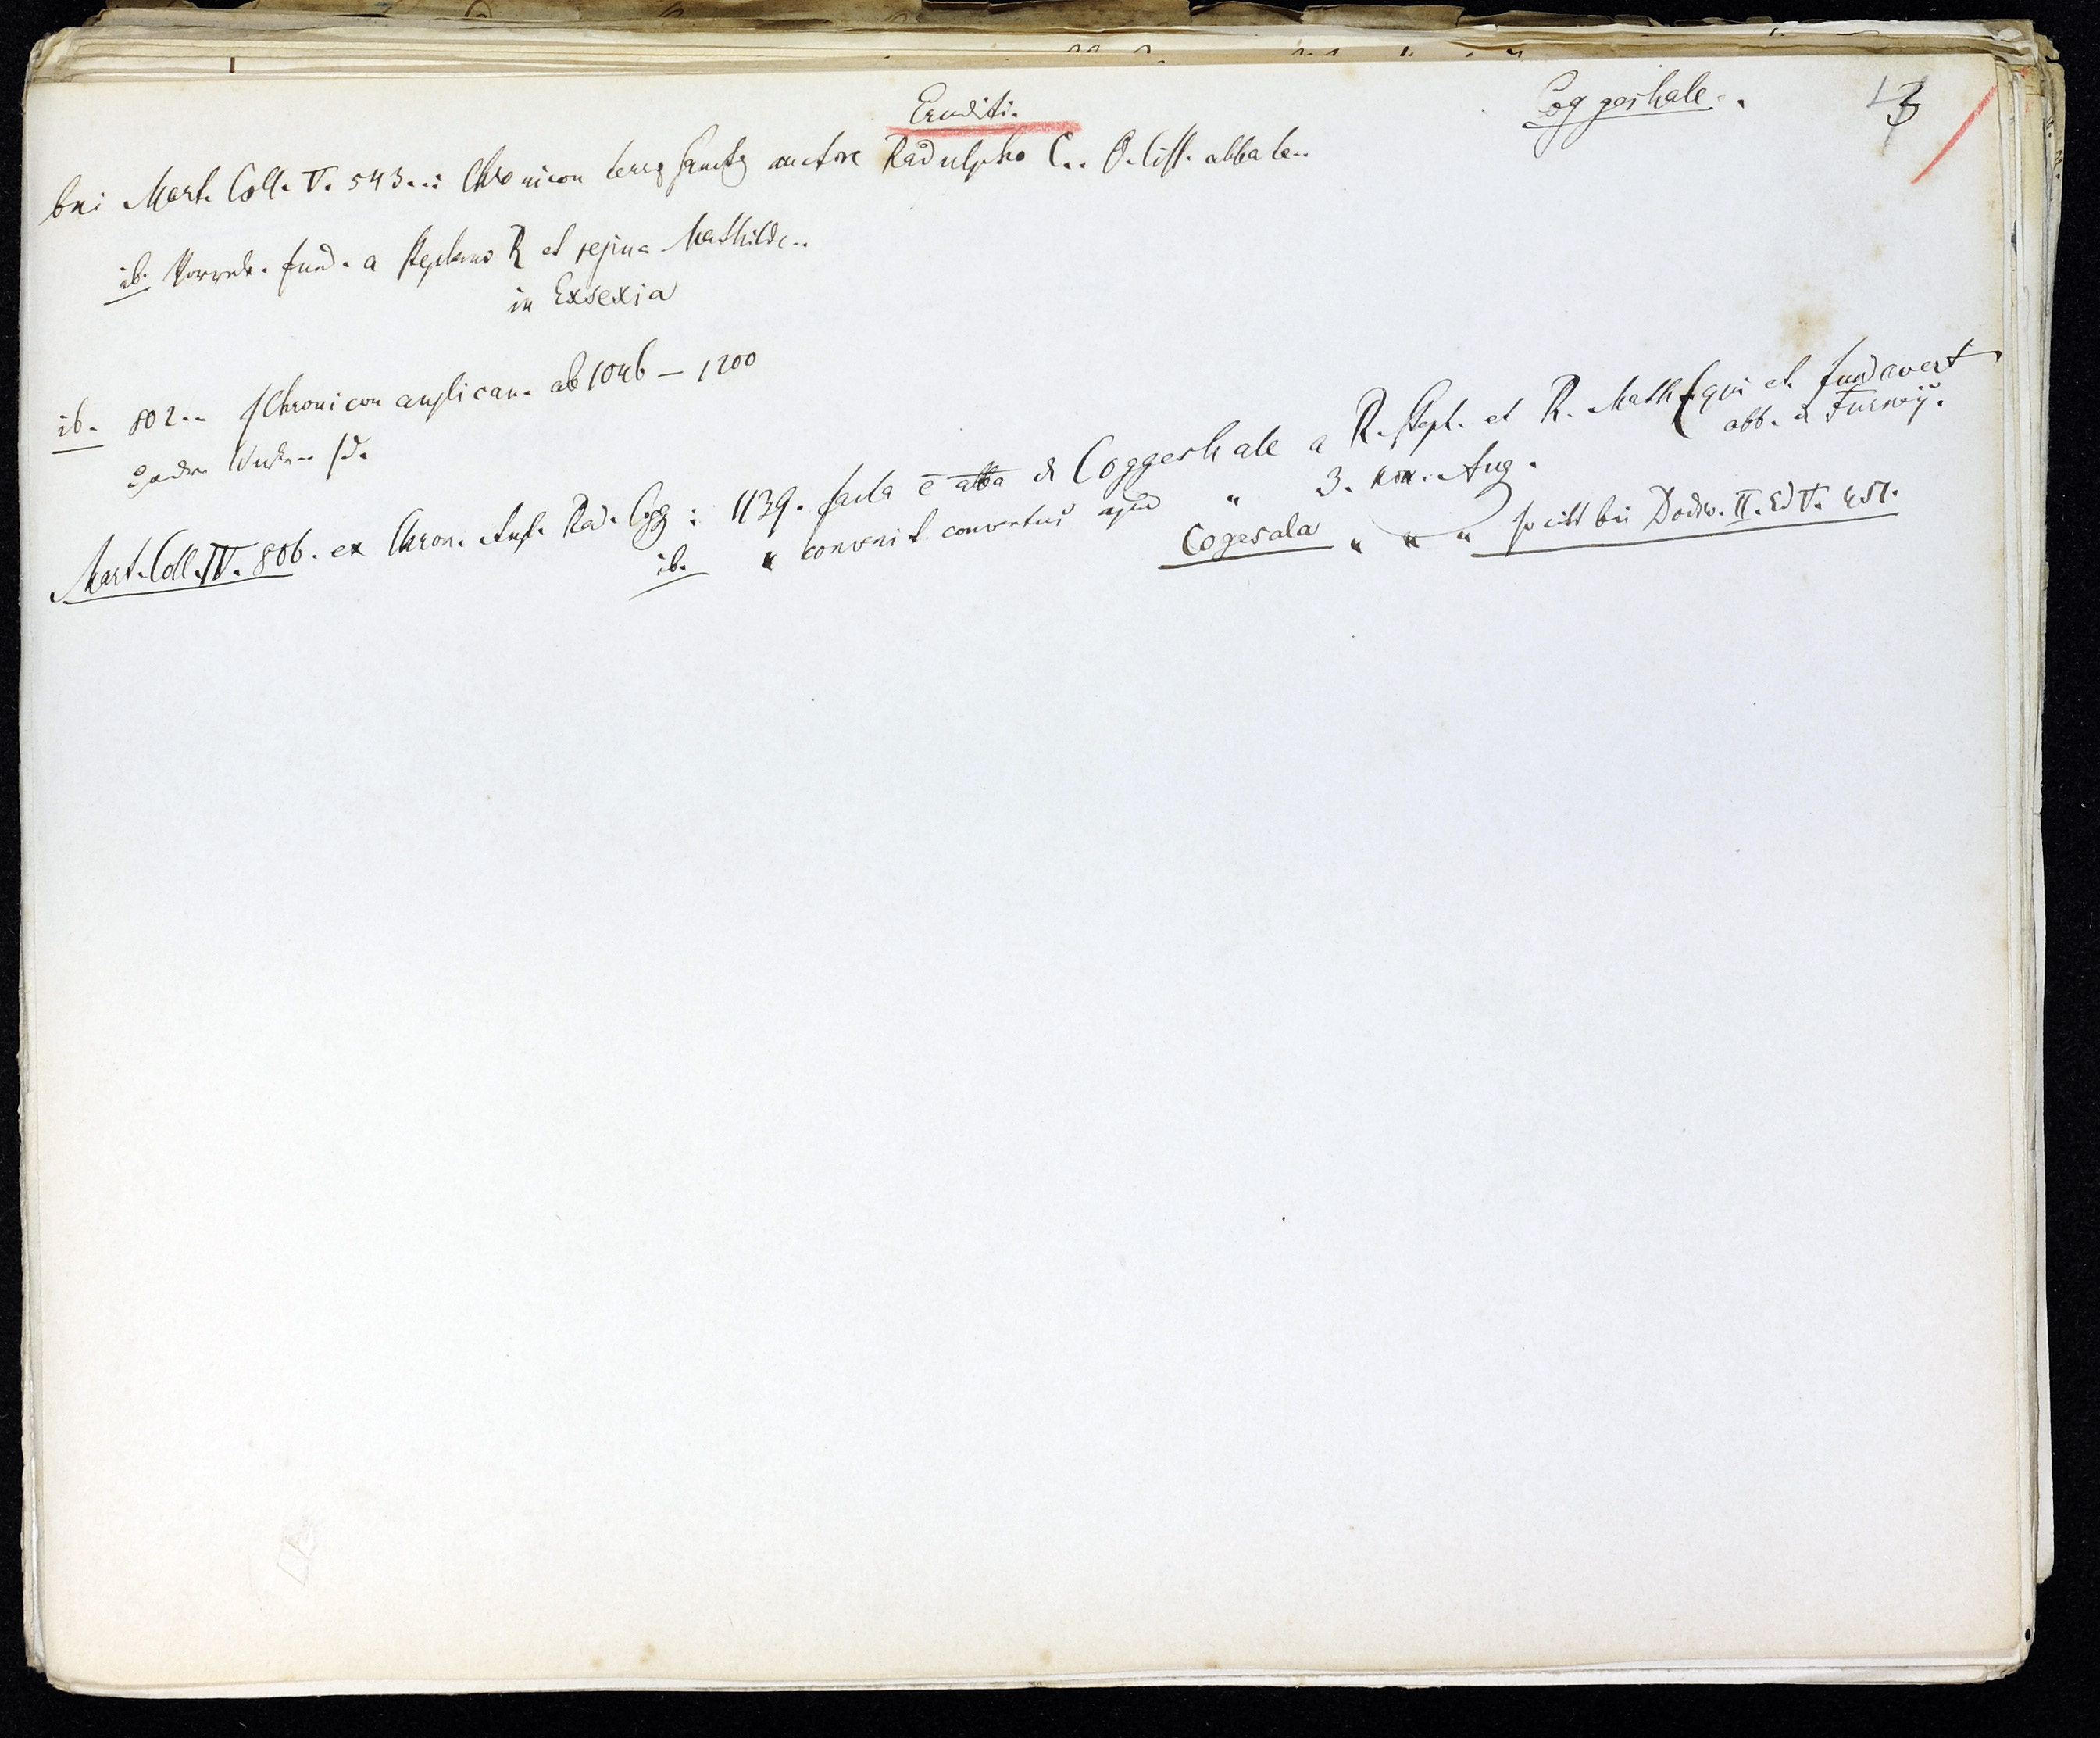 Eruditi.
Coggeshale..
3
bei Mart. Coll. V. 543..: Chronicon terrę Sanctę auctore Radulpho C.. O. Cist. abbate..
ib. Vorrede. fund. a Stephano R et regina Mathilde..
in Exsexia
ib. 802.. Chronicon anglican. ab 1046 – 1200
Mart. Coll. IV. 806. ex Chron. Angl. Rad. Cogg: 1139. facta ē abba de Coggeshale a R. Steph. et R. Math. (qui et fundavert
abb. de Furneij.
ib. " convenit conventus apud " 3. non. Aug.
Cogesala " " " so cist bei Dodsw. II. Ed V. 451.